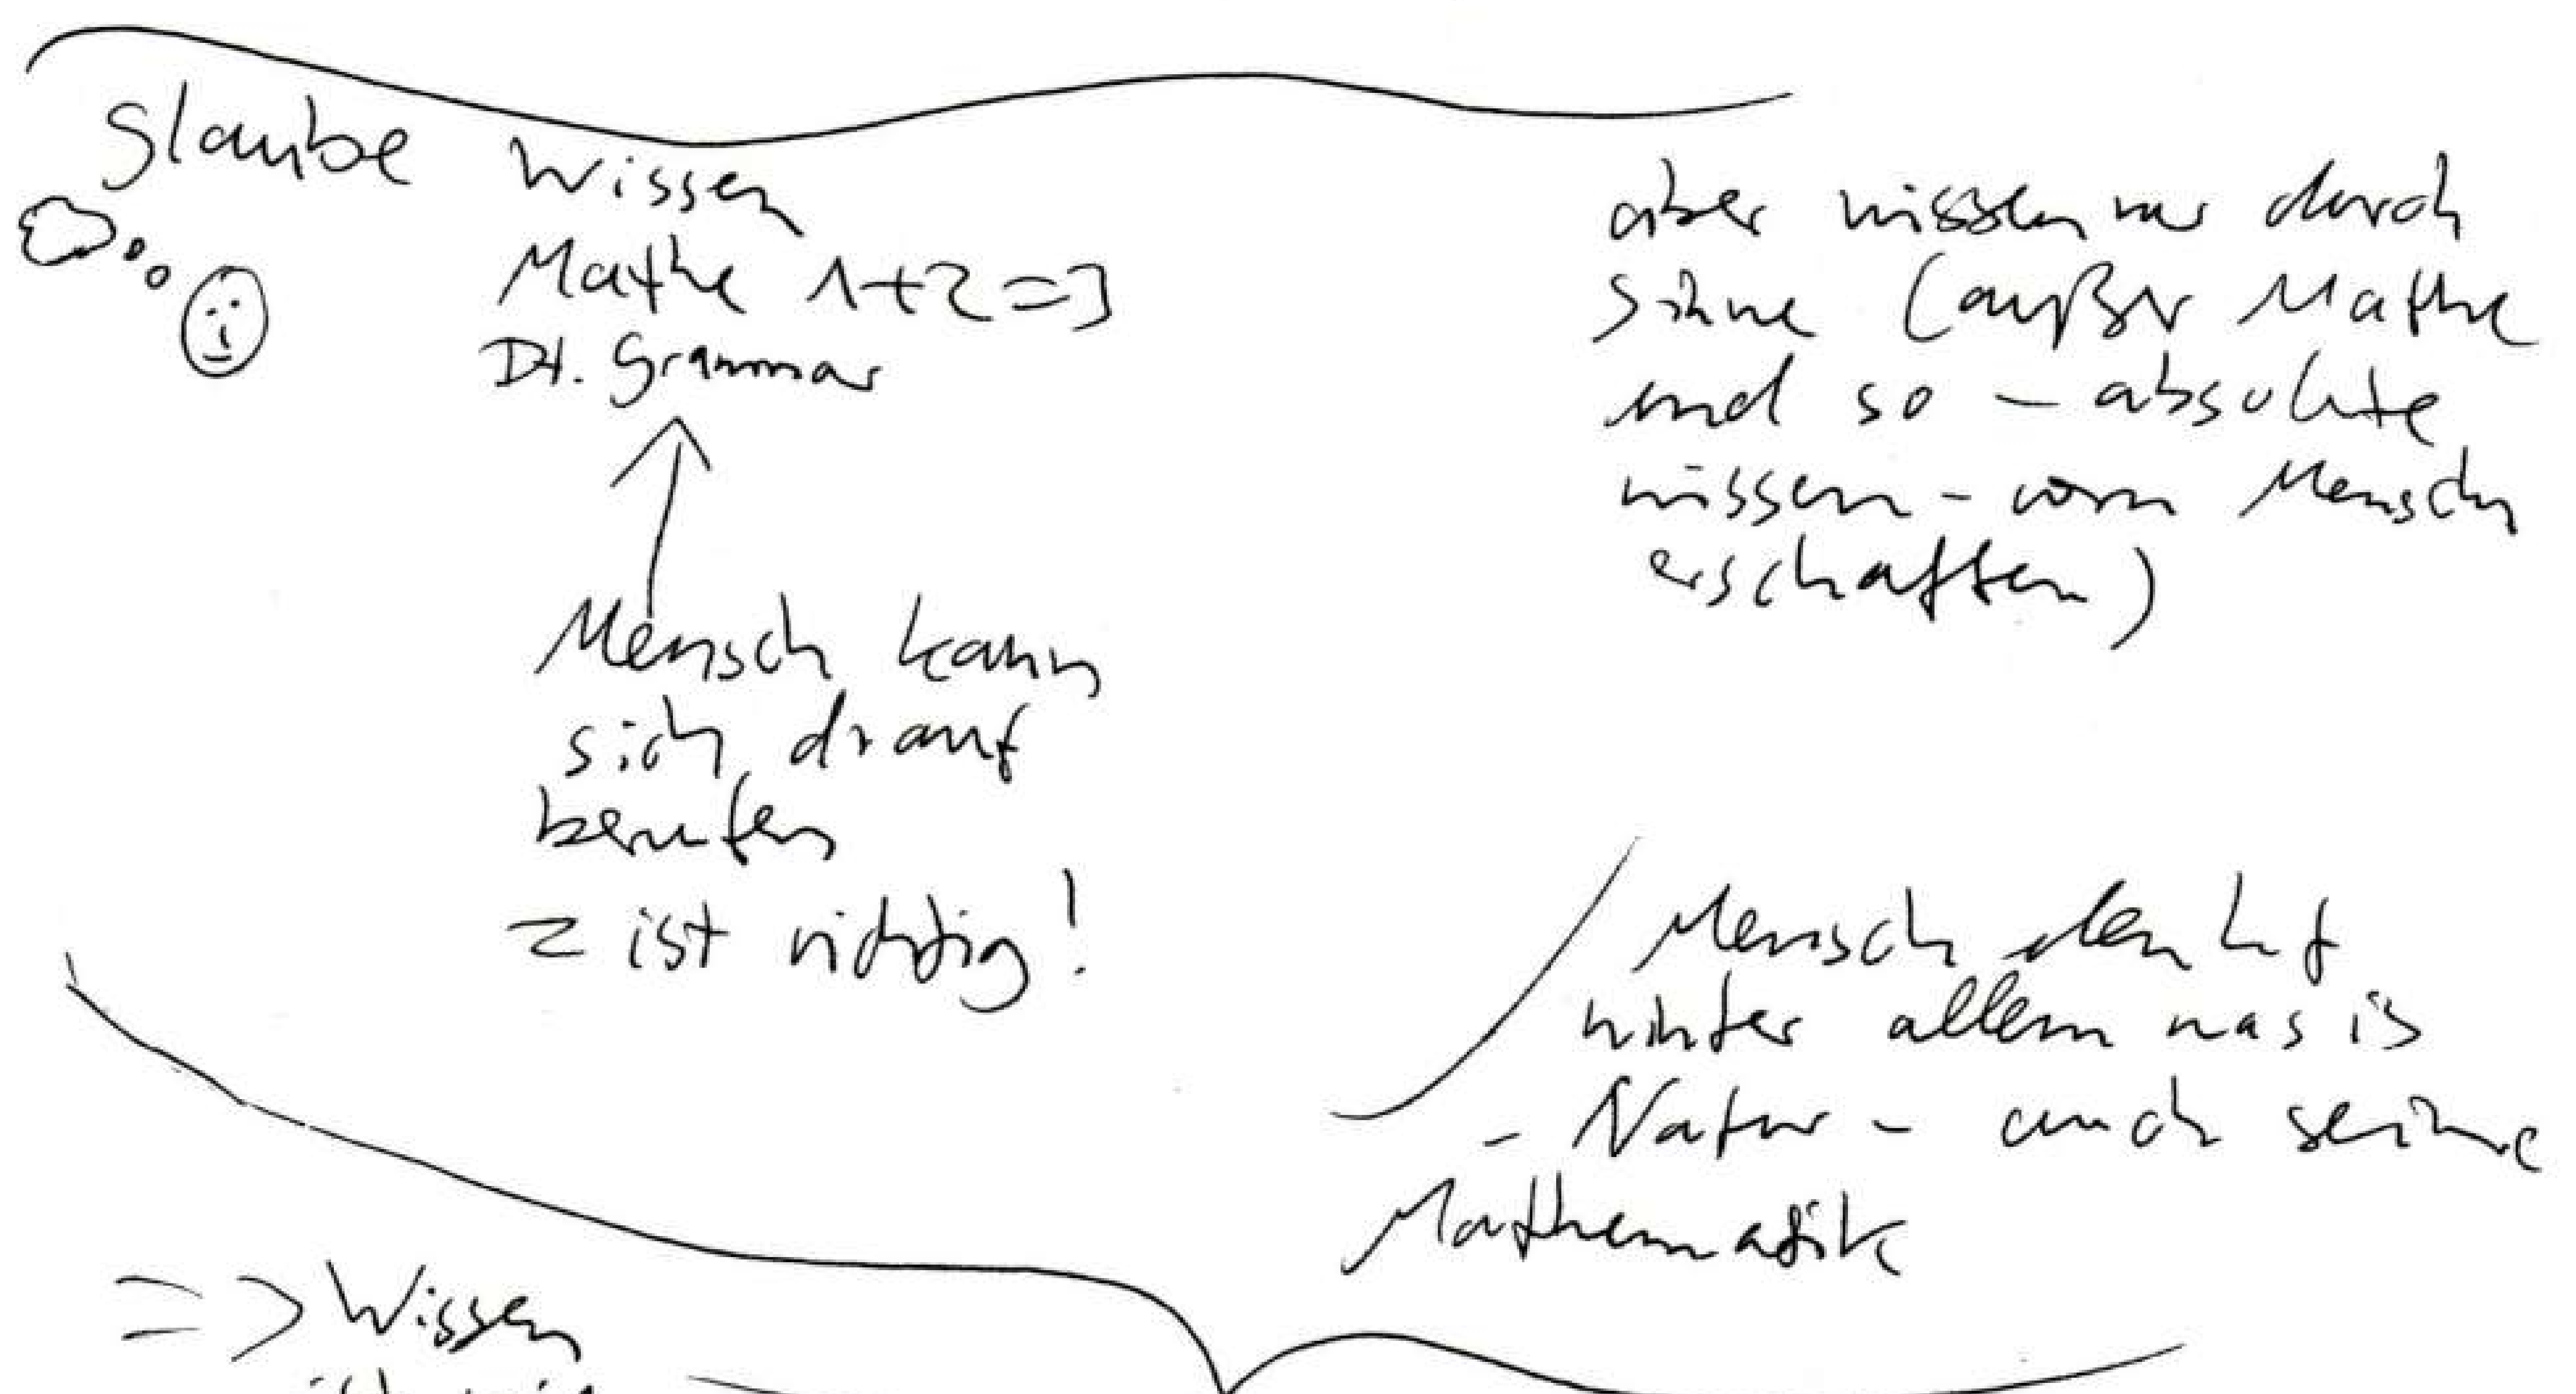 Glaube Wissen
Mathe 1+2=3
Dt. Grammar
Mensch kann
sich drauf
berufen
= ist richtig!
aber wissen nur durch
Sinne (außer Mathe
und so – absolute
wissen – vom Mensch
erschaffen)
Mensch denkt
hinter allem was is
- Natur - auch seine
Mathematik
=> Wissen